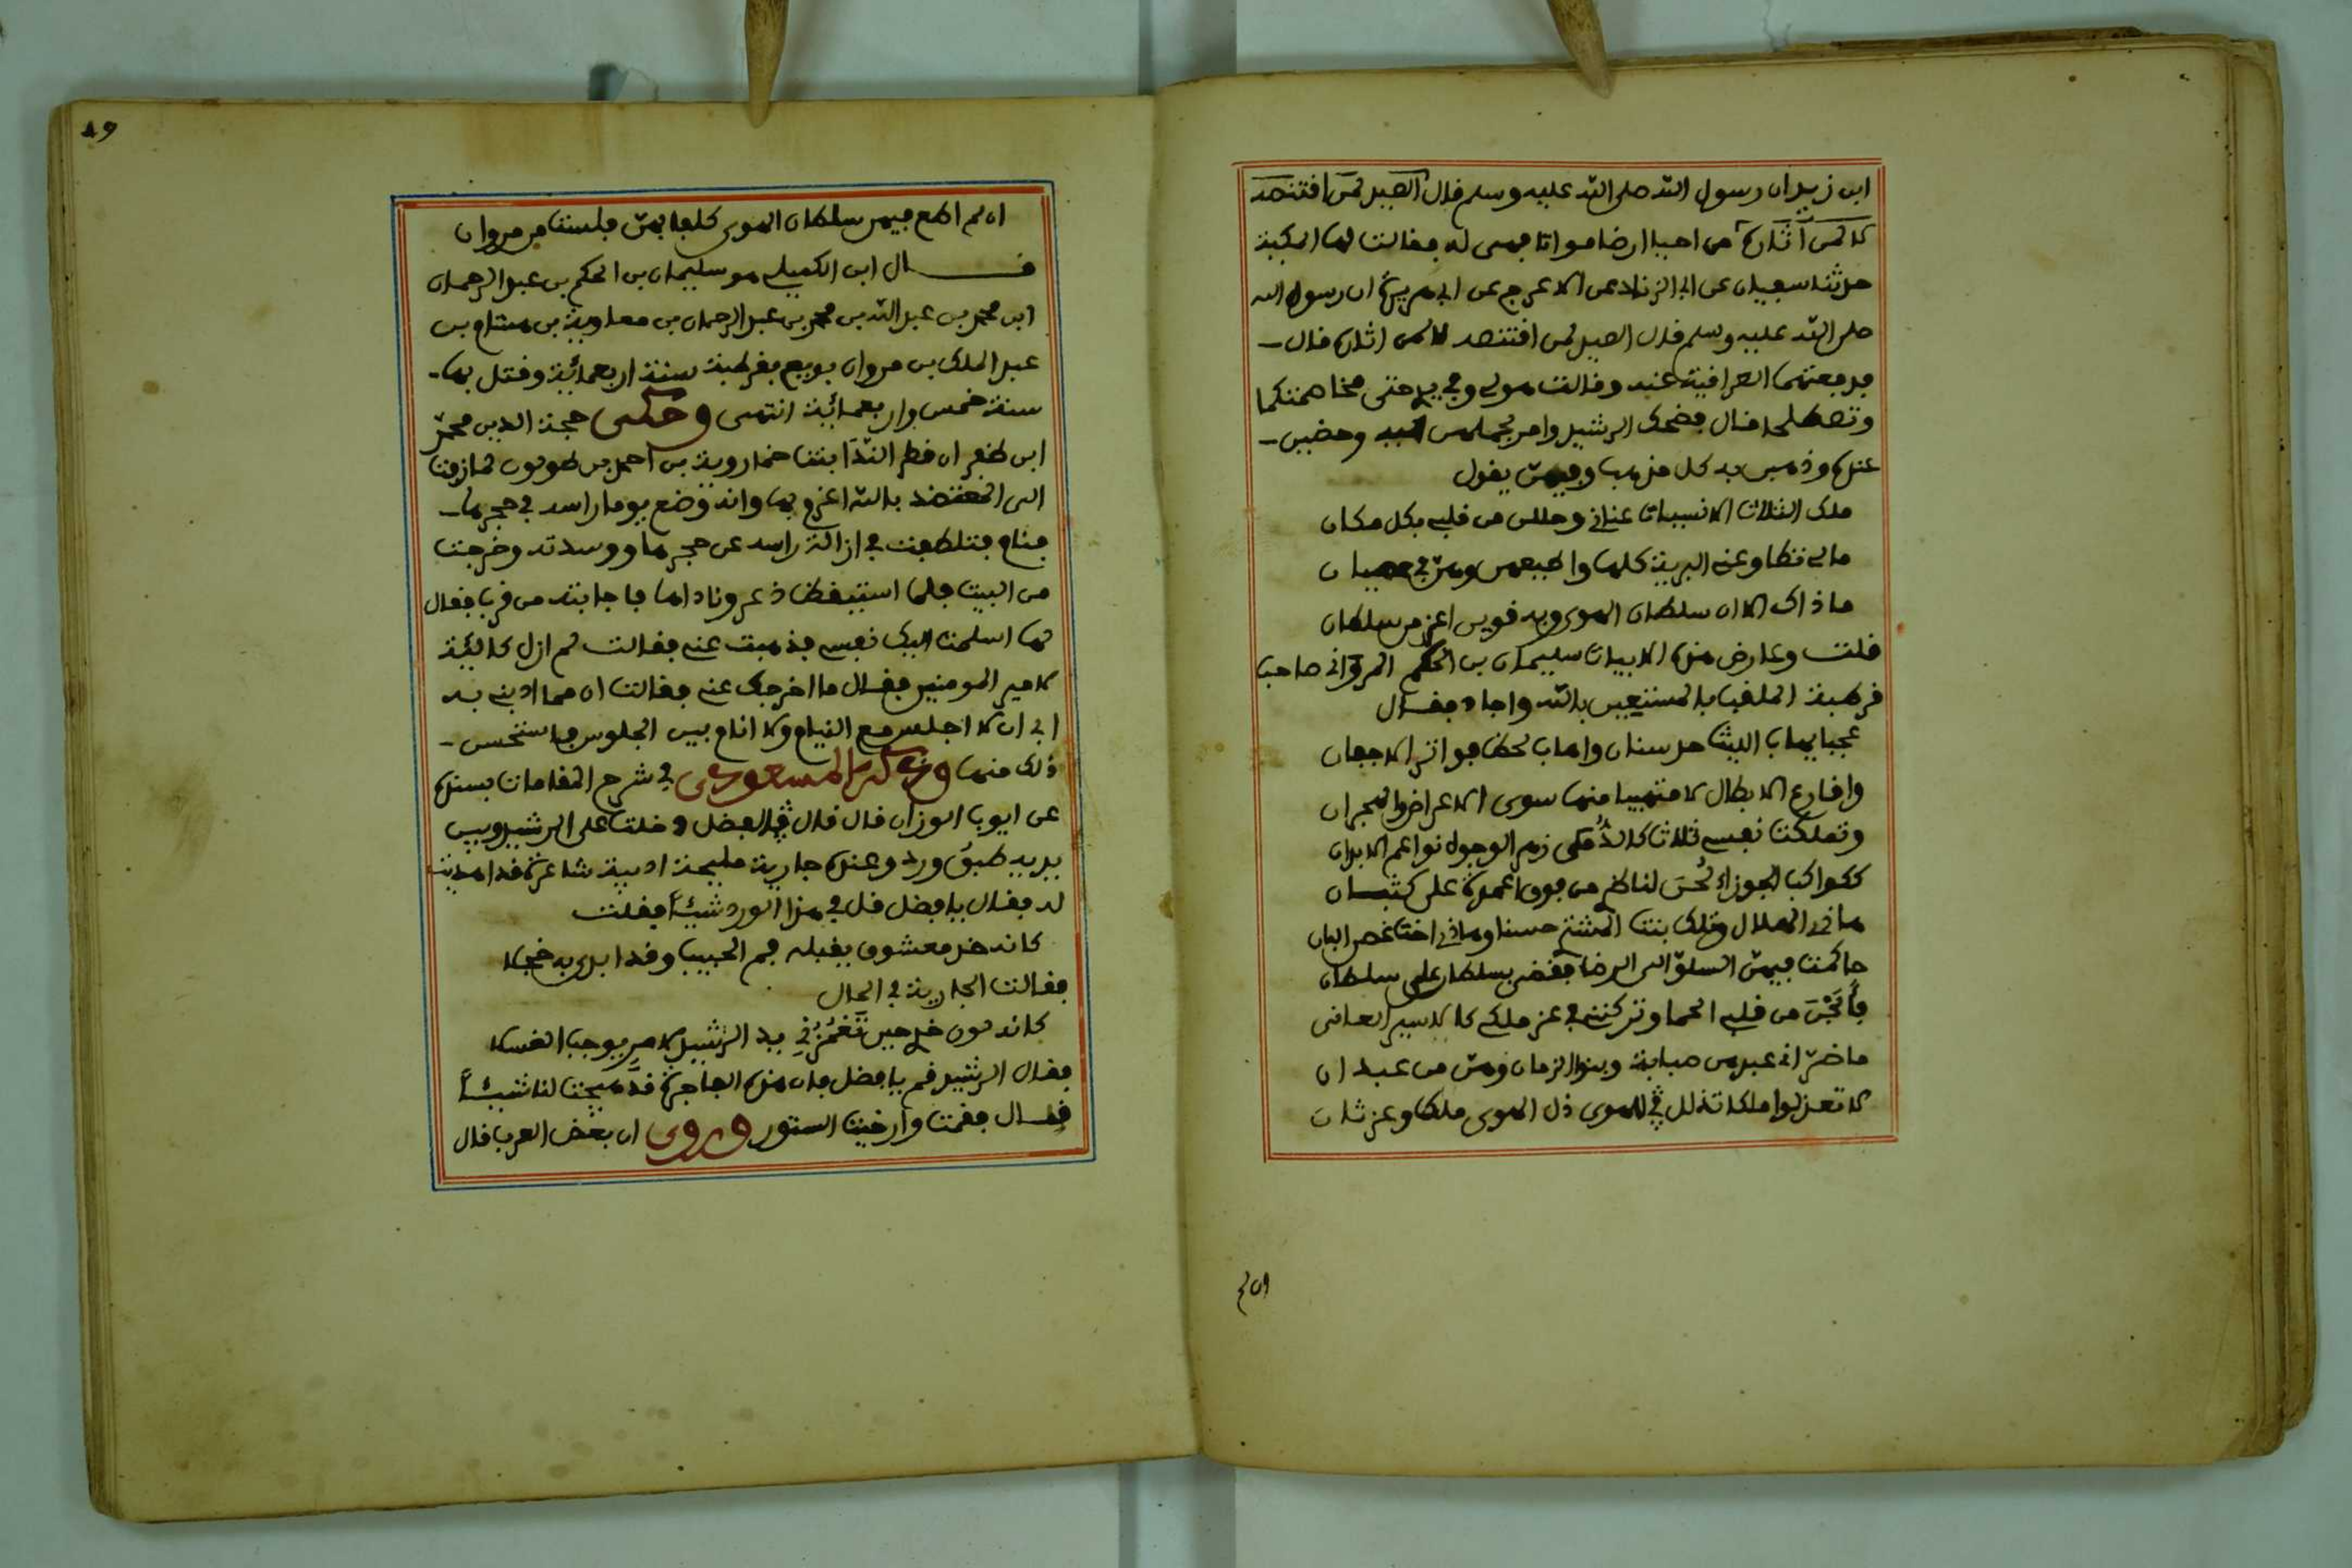 ابن زيد ان رسول الله صلى الله عليه وسلم قال الصيد لمن اقتنصه
لا لمن اثاره من احيا ارضا مواتا فهى له فقالت لها المكية
حدثنا سفيان عن ابى الزناد عن الاعرج عن ابى هريرة ان رسول الله
صلى الله عليه وسلم قال الصيد لمن اقتنصه لا لمن اثاره قال
فدفعتهما العراقية عنه وقالت هو لى وفى يدى حتى مخاصمتكما
وتصطلحا قال فضحك الرشيد وامر بحملهن اليه وحضين
عنده وذهبن به كل مذهب وفيهن يقول
ملك الثلاث الانسات عنانى وحللن من قلبى بكل مكان
مالى تطاوعنى البرية كلها واطيعهن وهن فى عصيانى
ماذاك الا ان سلطان الهوى وبه قوين اعز من سلطانى
قلت وعارض هذه الابيات سليمان بن الحكم المروانى صاحب
قرطبة الملقب بالمستعين بالله واجاد فقال
عجبا يهاب الليث حد سنانى واهاب لحظ فواتر الاجفان
واقارع الابطال لا متهيبا منها سوى الاعراض والهجران
وتملكت نفسى ثلاث كالدمى زهر الوجوه نواعم الابدان
ككواكب الجوزاء لحن لناظر من فوق اعمدة على كثبان
هاذى الهلال وتلك بنت المشتى حسنا وهاذى اخت غصن البان
حاكمت فيهن السلو الى الرضا فقضى بسلطان على سلطانى
فابحن من قلبى الحما وتركننى فى عز ملكى كالاسير العانى
ما ضر انى عبدهن صبابة وبنو الزمان وهن من عبدانى
لا تعذلوا ملكا تذلل فى الهوى ذل الهوى ملك وعز ثان
ان لم
٨٩
ان لم اطع فيهن سلطان الهوى كلفا بهن فلست من مروان
قال ابن الكميلى هو سليمان بن الحكم بن عبد الرحمان
ابن محمد بن عبد الله بن محمد بن عبد الرحمان بن معاوية بن هشام بن
عبد الملك بن مروان بويع بقرطبة سنة اربعمائية وقتل بها
سنة خمس واربعمائية انتهى وحكى حجة الدين محمد
ابن ظفر ان قطر الندا بنت خمارويه بن احمد بن طولون لما زفت
الى المعتضد بالله اغرى بها وانه وضع يوما راسه فى حجرها
فنام فتلطفت فى ازالة راسه عن حجرها ووسدته وخرجت
من البيت فلما استيقظ ذعر وناداها فاجابته من قرب فقال
لها اسلمت اليك نفسى فذهبت عنى فقالت لم ازل كالئة
لامير المومنين فقال ما اخرجك عنى فقالت ان مما ادبنى به
ابى ان لا اجلس مع النيام ولا انام بين الجلوس فاستحسن
ذلك منها وذكر المسعودى فى شرح المقامات بسنده
عن ايوب الوزان قال قال الفضل دخلت على الرشيد وبين
يديه طبق ورد وعنده جارية مليحة اديبة شاعرة قد اهديت
له فقال يا فضل قل فى هذا الورد شيئا فقلت
كانه خد معشوق يقبله فم الحبيب وقد ابدى به خجلا
فقالت الجارية فى الحال
كانه لون خدى حين تغمزنى يد الرشيد لامر يوجب الغسلا
فقال الرشيد قم يا فضل فان هذه الفاجرة قد هيجت لنا شيئا
فقال فقمت وارخيت الستور وروى ان بعض العرب قال